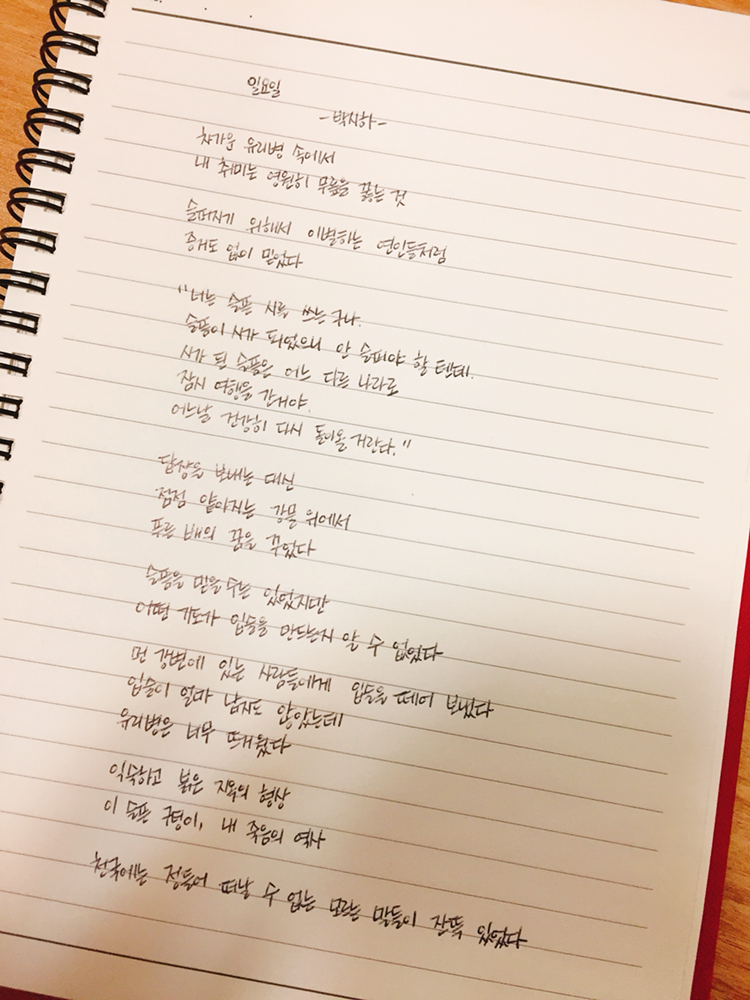 일요일
-박지하-
차가운 유리병 속에서
내 취미는 영원히 무릎을 꿇는 것
슬퍼지기 위해서 이별하는 연인들처럼
증거도 없이 믿었다
"너는 슬픈 시를 쓰는구나.
슬픔이 시가 되었으니 안 슬퍼야 할 텐데.
시가 된 슬픔은 어느 다른 나라로
잠시 여행을 간거야.
어느날 건강히 다시 돌아올 거란다."
답장을 보내는 대신
점점 얕아지는 강물 위에서
푸른 배의 꿈을 꾸었다
슬픔을 믿을 수는 있었지만
어떤 기도가 입술을 만드는지 알 수 없었다
먼 강변에 있는 사람들에게 입술을 떼어 보냈다
입술이 얼마 남지도 않았는데
유리병은 너무 뜨거웠다
익숙하고 붉은 지옥의 형상
이 슬픈 구멍이, 내 죽음의 역사
천국에는 정들어 떠날 수 없는 모르는 말들이 잔뜩 있었다